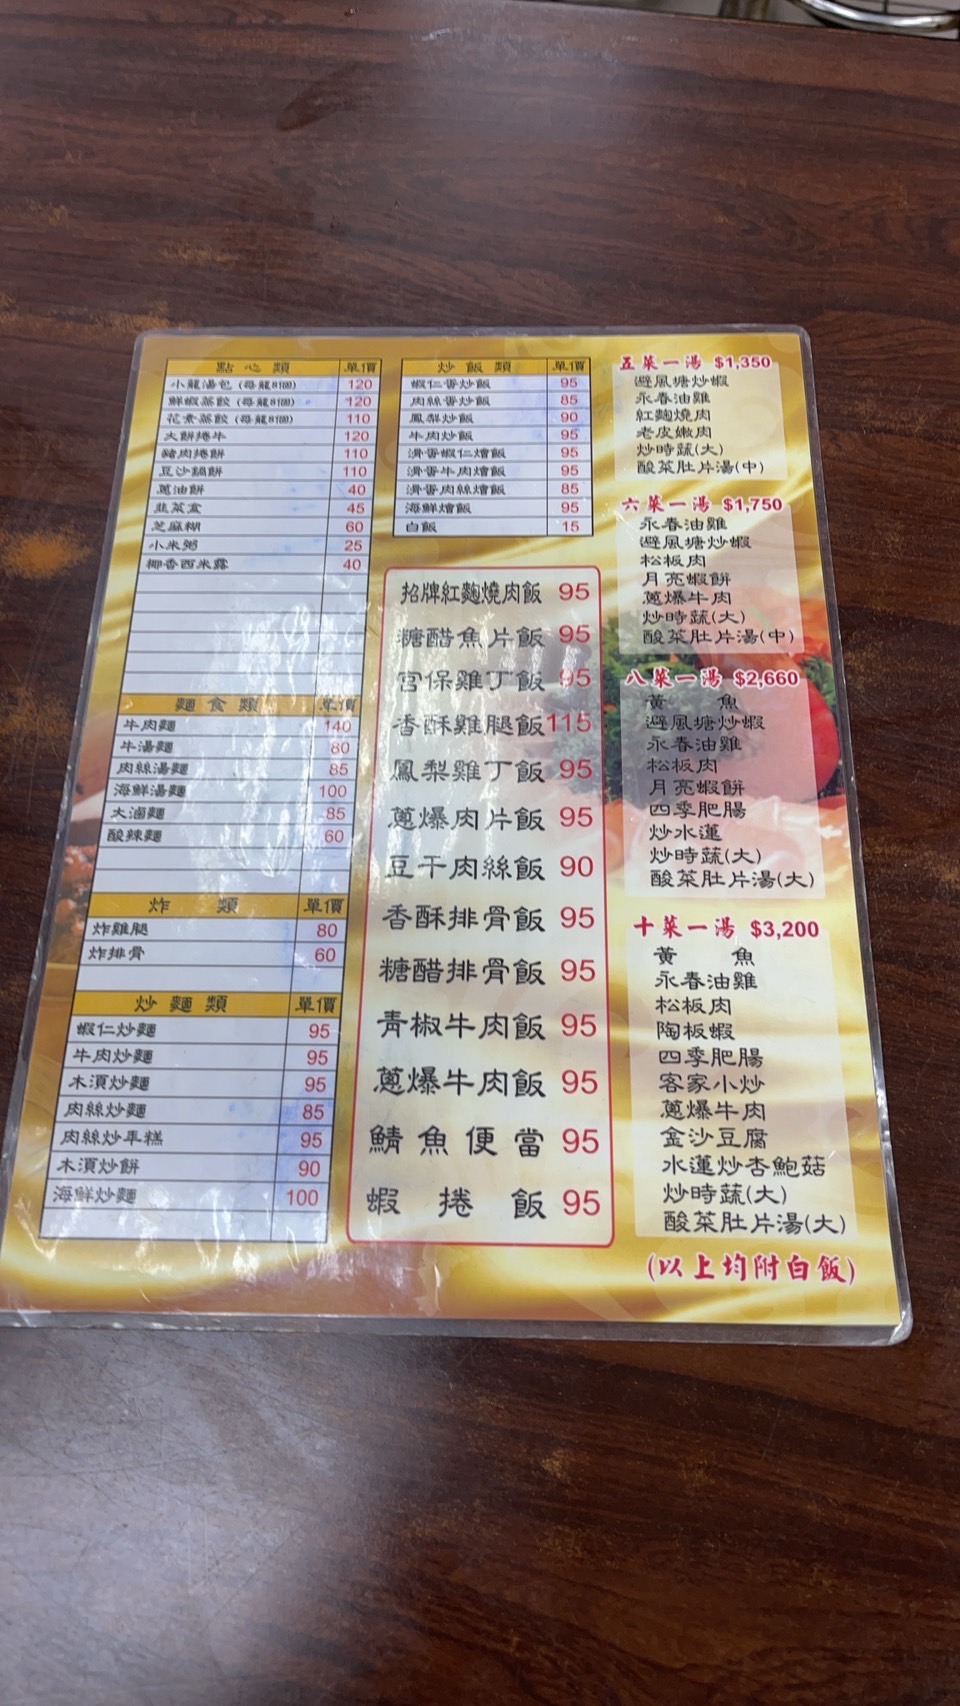 點心類 單價
小籠湯包(每籠8個) 120
鮮蝦蒸餃(每籠8個) 120
花素蒸餃(每籠8個) 110
大餅捲牛 120
豬肉捲餅 110
豆沙鍋餅 110
蔥油餅 40
韭菜盒 45
芝麻糊 60
小米粥 25
椰香西米露 40
麵食類 單價
牛肉麵 140
牛湯麵 80
肉絲湯麵 85
海鮮湯麵 100
大滷麵 85
酸辣麵 60
炸類 單價
炸雞腿 80
炸排骨 60
炒麵類 單價
蝦仁炒麵 95
牛肉炒麵 95
木須炒麵 95
肉絲炒麵 85
肉絲炒年糕 95
木須炒餅 90
海鮮炒麵 100
炒飯類 單價
蝦仁蛋炒飯 95
肉絲蛋炒飯 85
鳳梨炒飯 90
牛肉炒飯 95
滑蛋蝦仁燴飯 95
滑蛋牛肉燴飯 95
滑蛋肉絲燴飯 85
海鮮燴飯 95
白飯 15
招牌紅麴燒肉飯 95
糖醋魚片飯 95
宮保雞丁飯 95
香酥雞腿飯 115
鳳梨雞丁飯 95
蔥爆肉片飯 95
豆干肉絲飯 90
香酥排骨飯 95
糖醋排骨飯 95
青椒牛肉飯 95
蔥爆牛肉飯 95
鯖魚便當 95
蝦捲飯 95
五菜一湯 $1,350
避風塘炒蝦
永春油雞
紅麴燒肉
老皮嫩肉
炒時蔬(大)
酸菜肚片湯(中)
六菜一湯 $1,750
永春油雞
避風塘炒蝦
松板肉
月亮蝦餅
蔥爆牛肉
炒時蔬(大)
酸菜肚片湯(中)
八菜一湯 $2,660
黃魚
避風塘炒蝦
永春油雞
松板肉
月亮蝦餅
四季肥腸
炒水蓮
炒時蔬(大)
酸菜肚片湯(大)
十菜一湯 $3,200
黃魚
永春油雞
松板肉
陶板蝦
四季肥腸
客家小炒
蔥爆牛肉
金沙豆腐
水蓮炒杏鮑菇
炒時蔬(大)
酸菜肚片湯(大)
(以上均附白飯)